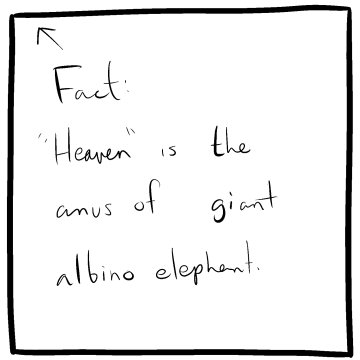 Fact:
"Heaven" is the
anus of giant
albino elephant.